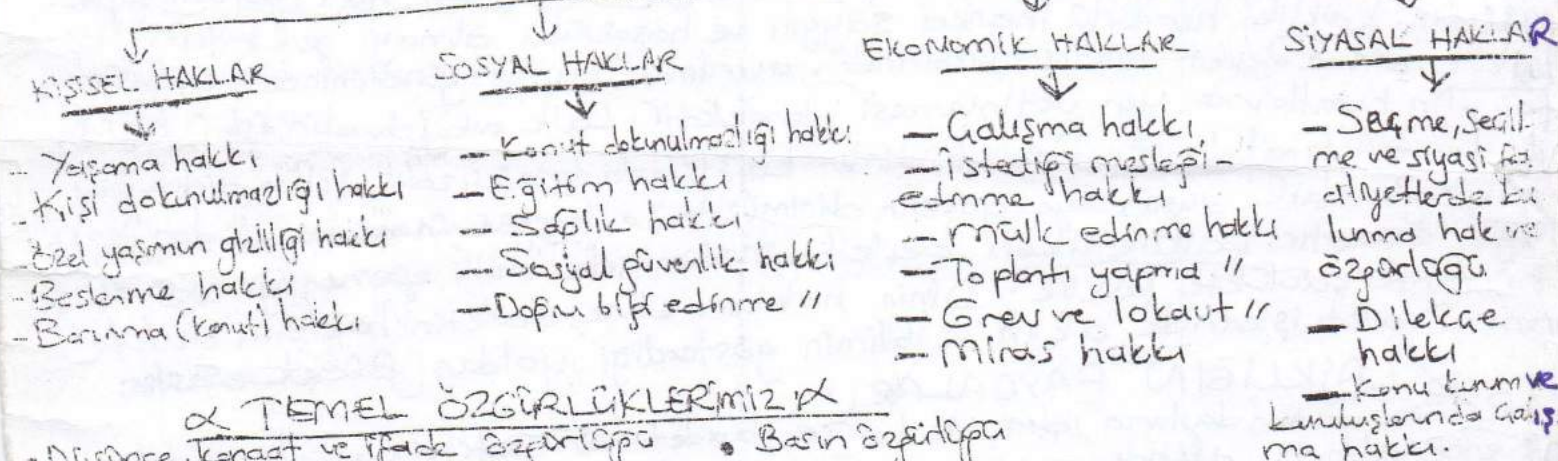 KİŞİSEL HAKLAR
- Yaşama hakkı
- Kişi dokunulmazlığı hakkı
- Özel yaşamın gizliliği hakkı
- Beslenme hakkı
- Barınma (konut) hakkı
SOSYAL HAKLAR
- Konut dokunulmazlığı hakkı
- Eğitim hakkı
- Sağlık hakkı
- Sosyal güvenlik hakkı
- Doğru bilgi edinme "
EKONOMİK HAKLAR
- Çalışma hakkı
- İstediği mesleği -
edinme hakkı
- Mülk edinme hakkı
- Toplantı yapma "
- Grev ve lokavt "
- Miras hakkı
SİYASAL HAKLAR
- Seçme, seçil-
me ve siyasi fa
aliyetlerde bu
lunma hak ve
özgürlüğü
- Dilekçe
hakkı
- Kamu kurum ve
kuruluşlarında çalış
ma hakkı.
TEMEL ÖZGÜRLÜKLERİMİZ
• Düşünce, kanaat ve ifade özgürlüğü • Basın özgürlüğü